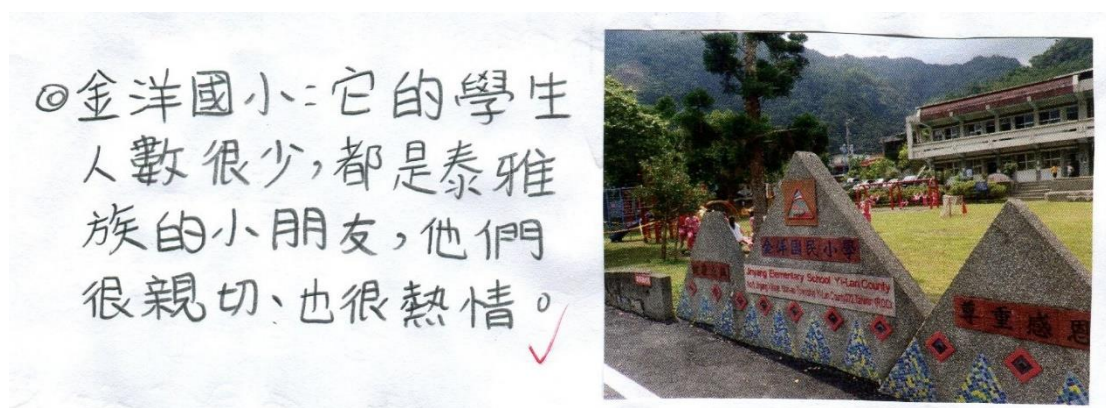 ◎金洋國小:它的學生
人數很少,都是泰雅
族的小朋友,他們
很親切、也很熱情。
金洋國民小學
Jinyang Elementary School Yi-Lan County
尊重感恩